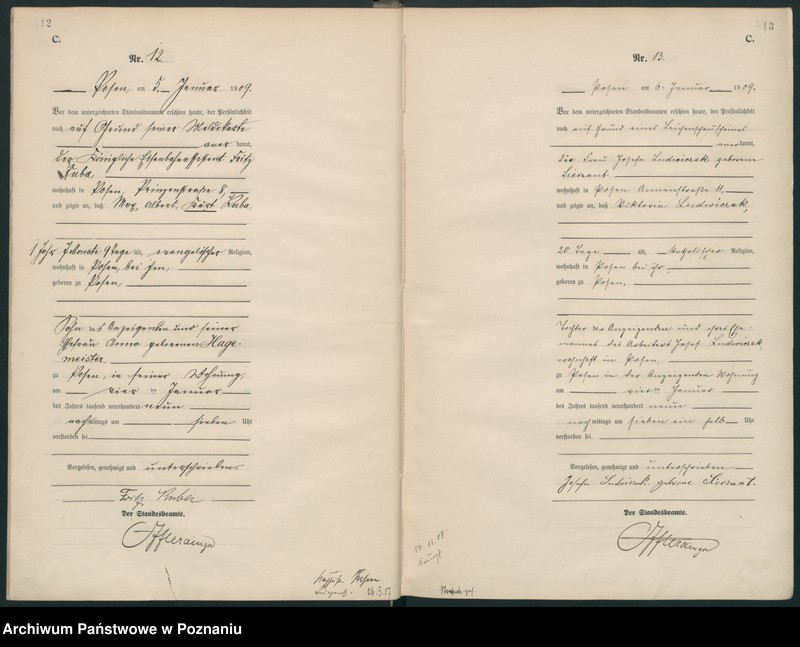 12
C.
Nr. 12
Posen, am 5. Januar 1909.
Vor dem unterzeichneten Standesbeamten erschien heute, der Persönlichkeit
nach auf Grund seiner Meldekarte
anerkannt,
der Königliche Eisenbahnassistent Fritz
Kuba,
wohnhaft in Posen, Prinzenstraße 8,
und zeigte an, daß Max, Albert, Kurt Kuba,
1 Jahr 7 Monate 9 Tage alt, evangelischer Religion,
wohnhaft in Posen, bei ihm,
geboren zu Posen,
Sohn des Anzeigenden und seiner
Ehefrau Anna geborenen Hage-
meister
zu Posen, in seiner Wohnung,
am vier ten Januar
des Jahres tausend neunhundert neun
nachmittags um sieben Uhr
verstorben sei.
Vorgelesen, genehmigt und unterschrieben.
Fritz
Der Standesbeamte.
13
C.
Nr. 13.
Posen am 6. Januar 1909.
Vor dem unterzeichneten Standesbeamten erschien heute, der Persönlichkeit
nach auf Grund eines Leichenschauscheines
anerkannt,
die Frau Josefa Ludwiczak geborene
wohnhaft in Posen Annenstraße 11,
und zeigte an, daß Viktoria Ludwiczak,
20 Tage alt, katholischer Religion,
wohnhaft in Posen bei ihr,
geboren zu Posen,
Tochter der Anzeigenden und ihres Ehe-
mannes des Arbeiters Josef Ludwiczak,
wohnhaft in Posen,
zu Posen in der Anzeigenden Wohnung
am vier ten Januar
des Jahres tausend neunhundert neun
nachmittags um sieben ein halb Uhr
verstorben sei.
Vorgelesen, genehmigt und unterschrieben
Josefa Ludwiczak geborene
Der Standesbeamte.
Archiwum Państwowe w Poznaniu